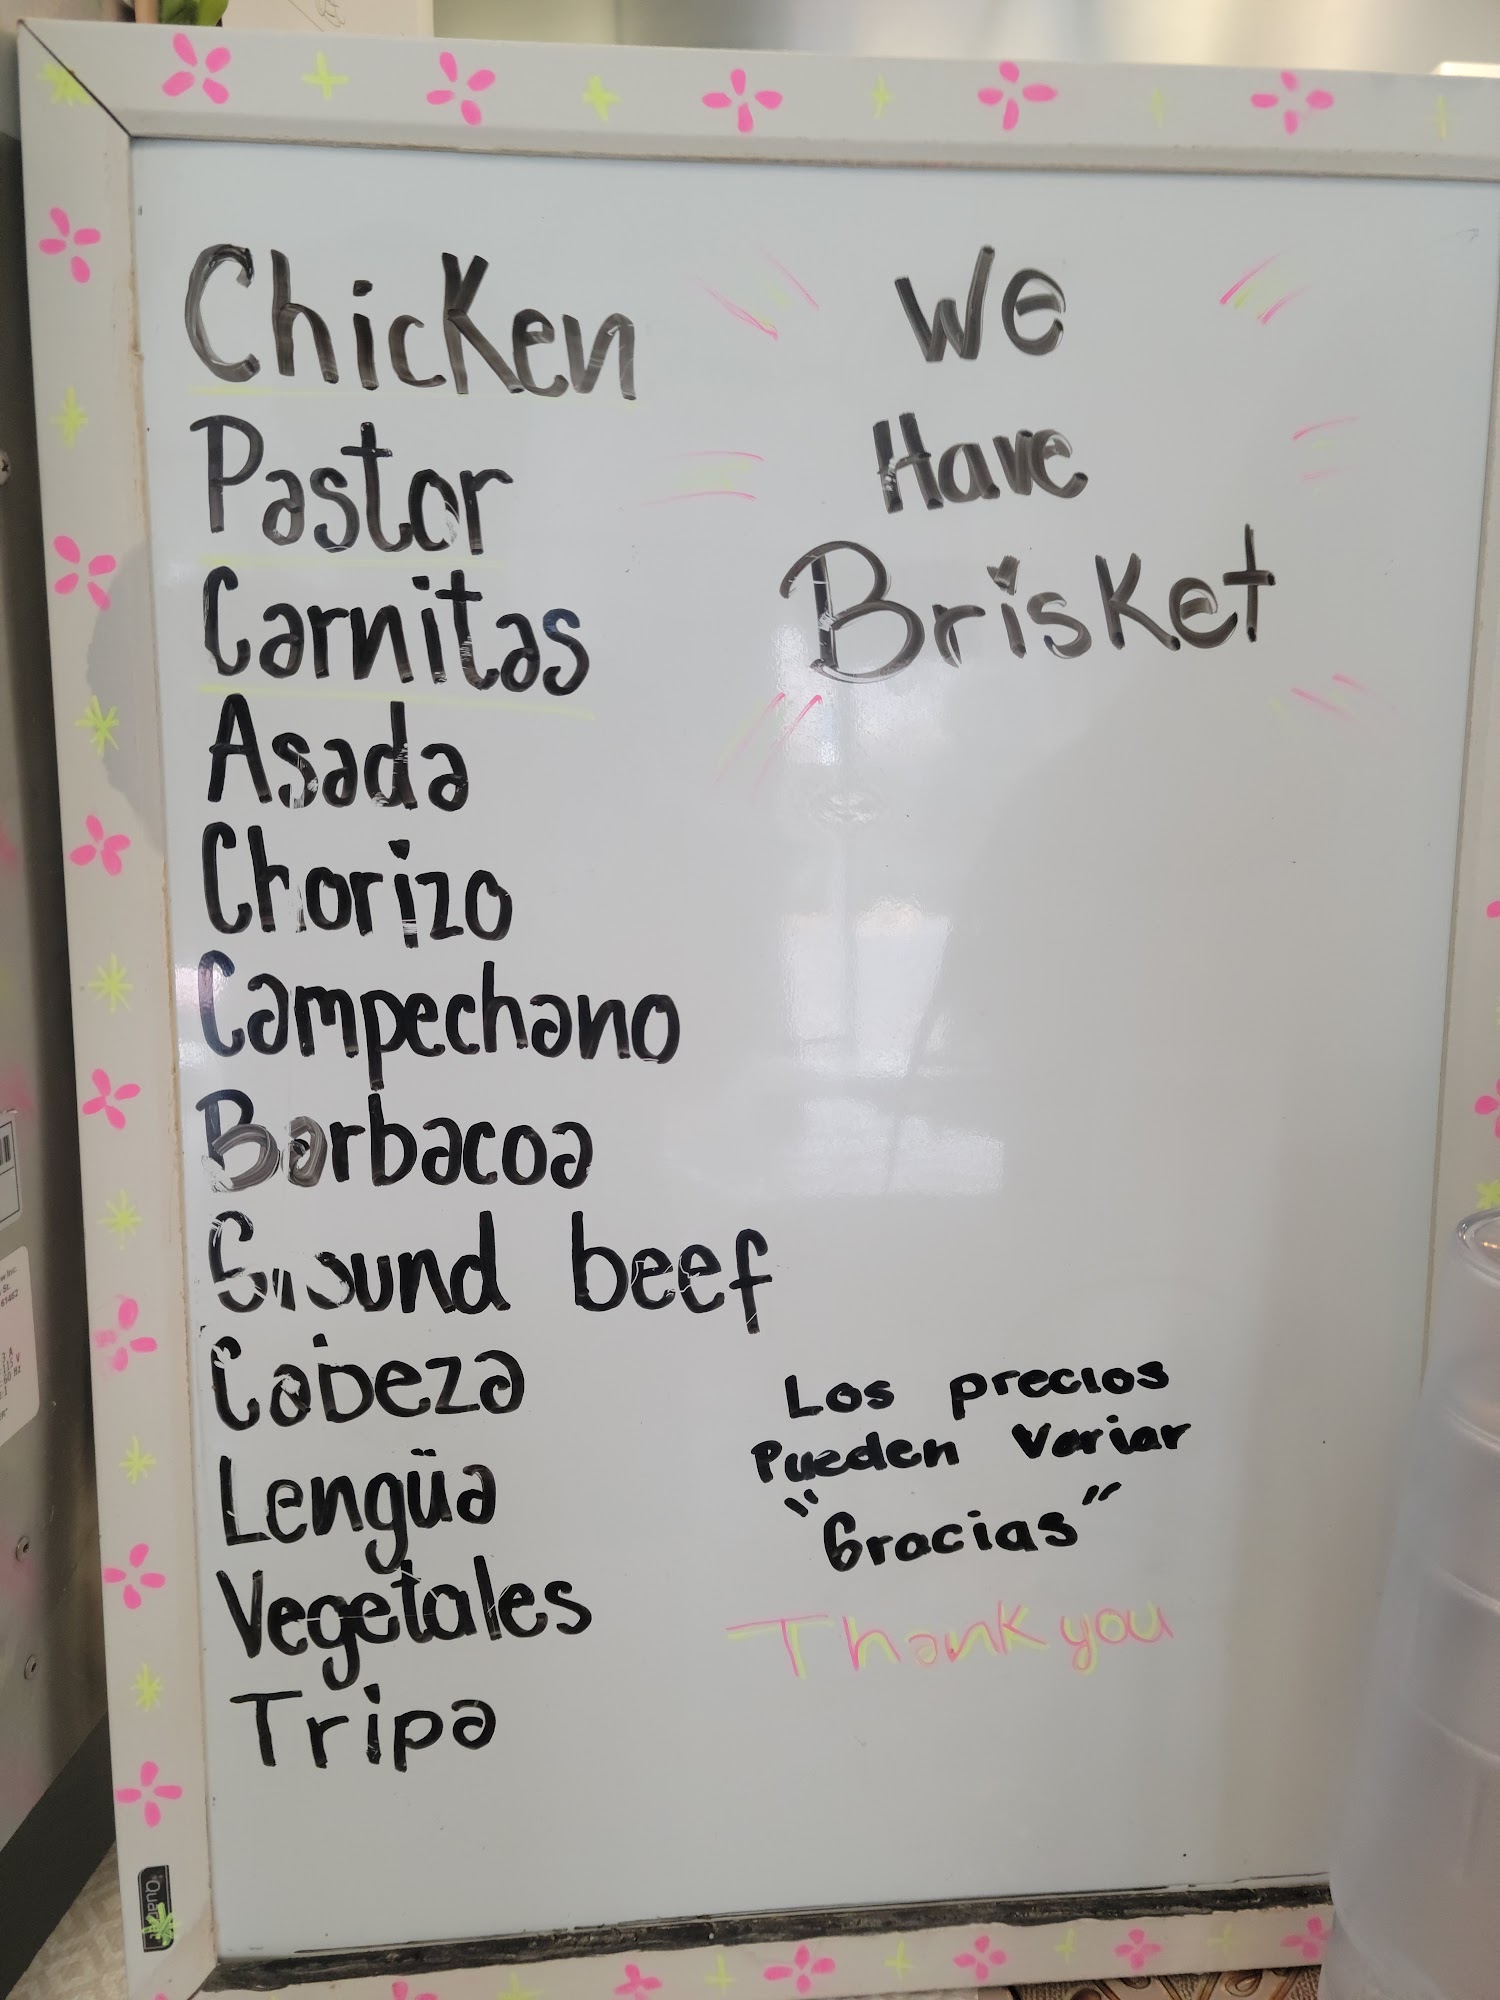 Chicken
Pastor
Carnitas
Asada
Chorizo
Campechano
Barbacoa
Ground beef
Cabeza
Lengüa
Vegetales
Tripa
We
Have
Brisket
Los precios
Pueden Variar
"Gracias"
Thank you